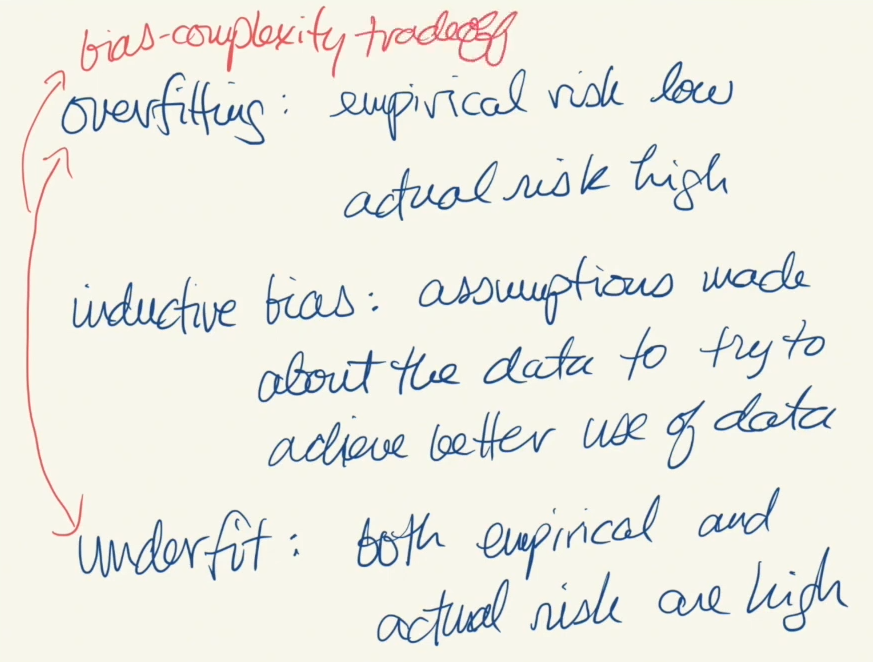 bias-complexity tradeoff
overfitting: empirical risk low
actual risk high
inductive bias: assumptions made
about the data to try to
achieve better use of data
underfit: both empirical and
actual risk are high